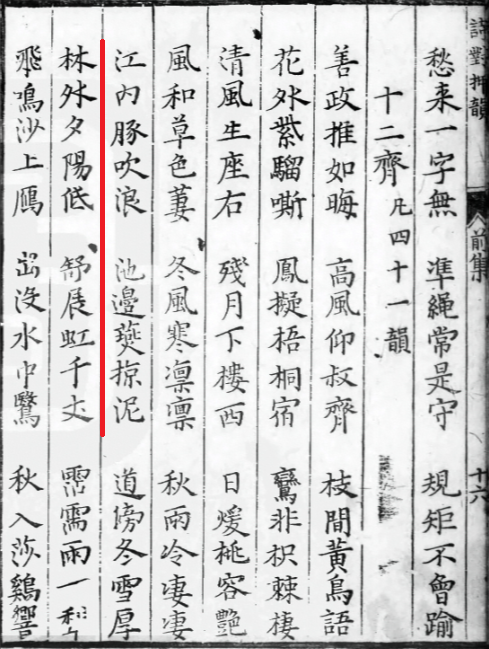 詩對押韻 前集 十六
愁来一字無 凖繩常是守 規矩不會踰
十二齊 凡四十一韻
善政推如晦 高風仰叔齊 枝間黃鳥語
花外紫騮嘶 鳳擬梧桐宿 鸞非枳棘棲
清風生座右 殘月下樓西 日煖桃容艷
風和草色萋 冬風寒凛凛 秋雨冷淒淒
江内豚吹浪 池邊燕掠泥 道傍冬雪厚
林外夕陽低 舒展虹千丈 霑濡雨一
飛鳴沙上鴈 出沒水中鷖 秋入莎鷄響